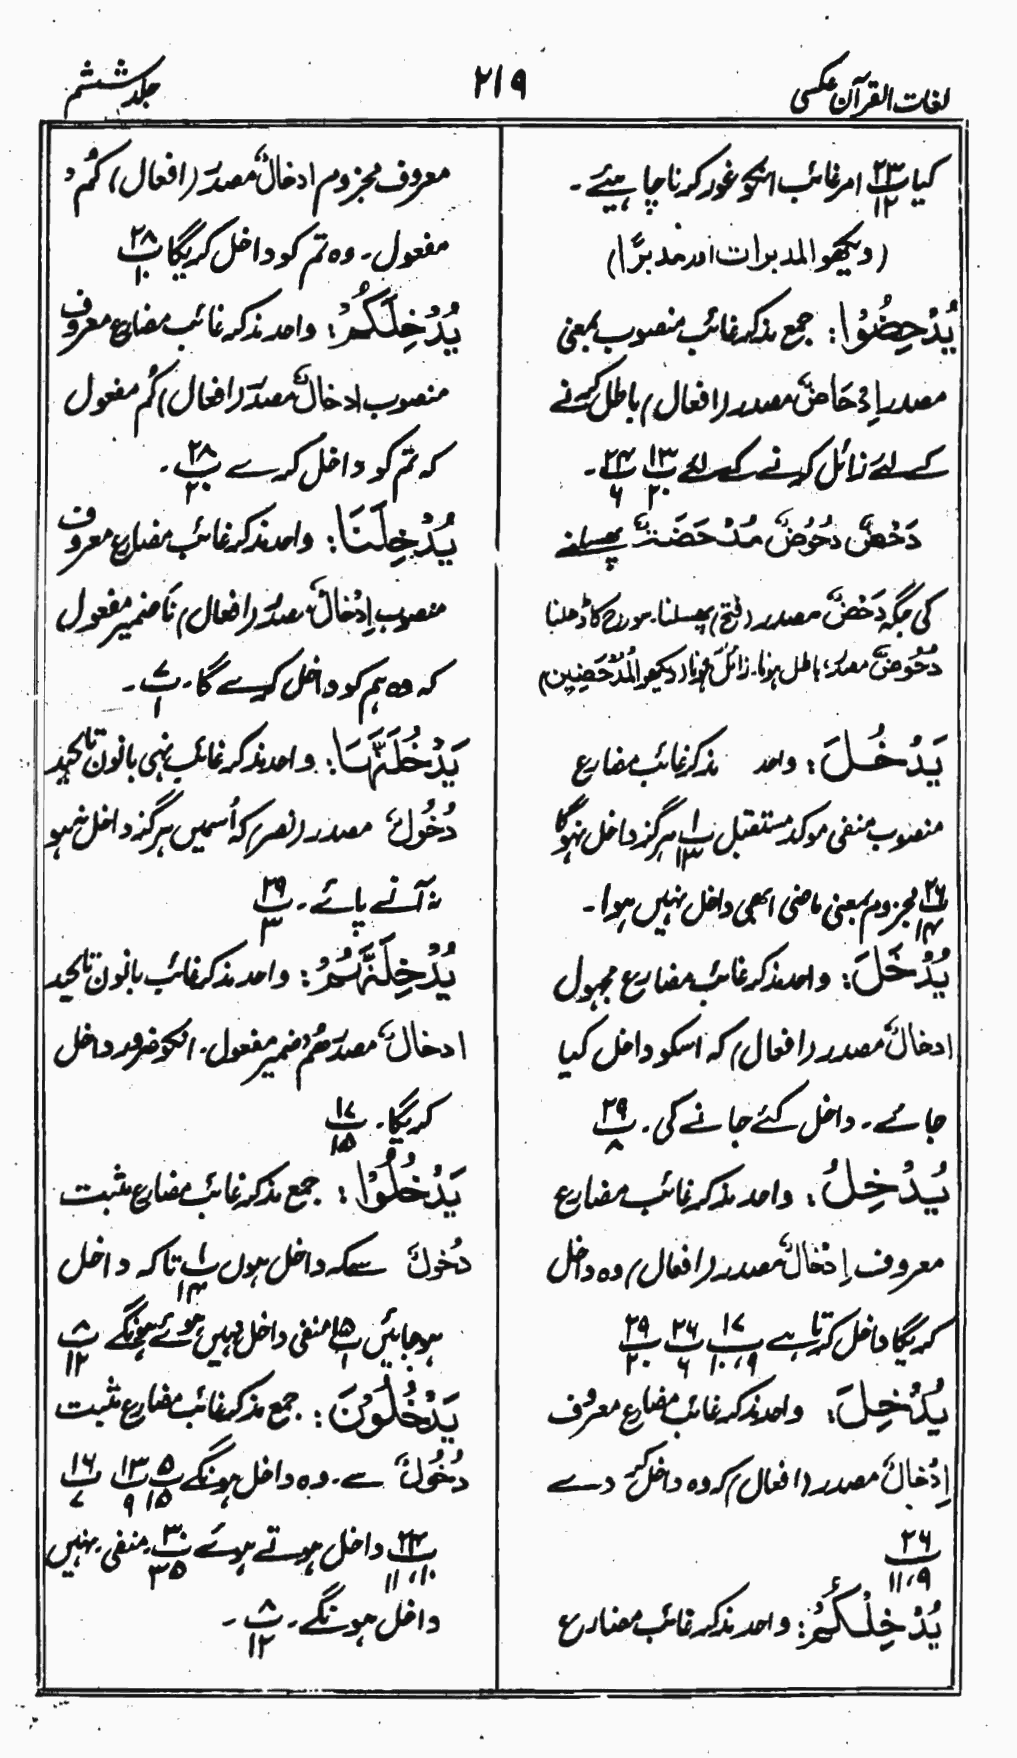 لغات القرآن عکسی
۲۱۹
جلد ششم
کیا ۲۳ب۱۲ امر غائب انکو غور کرنا چاہیئے۔
(دیکھو المدبرات اور مدبرًا)
یُدْحِضُوْا: جمع مذکر غائب منصوب بمعنی
مصدر اِدْحَاضٌ مصدر (افعال) باطل کرنے
کے لئے زائل کرنے کے لئے ۱۳ب۲۰ ۲۴ب۶۔
دَحْضٌ دُحُوْضٌ مَدْحَضَتٌ پھسلنے
کی جگہ دَحْضٌ مصدر (فتح) پھسلنا۔ سورج کا ڈھلنا
دُحُوْضٌ مصدر؛ باطل ہونا۔ زائل ہونا (دیکھو المُدْحَضِیْن)
یَدْخُلَ: واحد مذکر غائب مضارع
منصوب منفی موکد مستقبل ۱ب۱۳ ہرگز داخل نہوگا
۲۶ب۱۴ مجزوم بمعنی ماضی ابھی داخل نہیں ہوا۔
یُدْخَلَ: واحد مذکر غائب مضارع مجہول
ادخالٌ مصدر (افعال) کہ اسکو داخل کیا
جائے۔ داخل کئے جانے کی۔ ۲۹ب۸
یُدْخِلُ: واحد مذکر غائب مضارع
معروف اِدْخَالٌ مصدر (افعال) وہ داخل
کریگا داخل کرتا ہے ۱۷ب۹،۱۰ ۲۶ب۶ ۲۹ب۲۰
یُدْخِلَ: واحد مذکر غائب مضارع معروف
اِدْخَالٌ مصدر (افعال) کہ وہ داخل کر دے
۲۶ب۹،۱۱
یُدْخِلْکُمْ: واحد مذکر غائب مضارع
معروف مجزوم ادخالٌ مصدر (افعال) کُمْ
مفعول۔ وہ تم کو داخل کریگا ۲۸ب۱۰
یُدْخِلَکُمْ: واحد مذکر غائب مضارع معروف
منصوب ادخالٌ مصدر (افعال) کُم مفعول
کہ تم کو داخل کرے ۲۸ب۲۰۔
یُدْخِلَنَا: واحد مذکر غائب مضارع معروف
منصوب اِدْخَالٌ مصدر (افعال) نَا ضمیر مفعول
کہ وہ ہم کو داخل کرے گا۔ ۷ب۱۔
یَدْخُلَنَّہَا: واحد مذکر غائب نہی بانون تاکید
دُخُوْلٌ مصدر (نصر) کہ اُسمیں ہرگز داخل نہو
نہ آنے پائے۔ ۲۹ب۳
یُدْخِلَنَّہُمْ: واحد مذکر غائب بانون تاکید
ادخالٌ مصدر ھُمْ ضمیر مفعول۔ انکو ضرور داخل
کریگا۔ ۱۷ب۱۵
یَدْخُلُوْا: جمع مذکر غائب مضارع مثبت
دُخُولٌ سے کہ داخل ہوں ۱ب۱۴ تاکہ داخل
ہوجائیں ۱۵ب۱ منفی داخل نہیں ہوئے ہونگے ۸ب۱۲
یَدْخُلُوْنَ: جمع مذکر غائب مضارع مثبت
دُخُولٌ سے۔ وہ داخل ہونگے ۵ب۱۵ ۱۳ب۹ ۱۶ب۷
۲۴ب۱۰،۱۱ داخل ہوتے ہوئے ۳۰ب۳۵۔ منفی۔ نہیں
داخل ہونگے۔ ۸ب۱۲۔